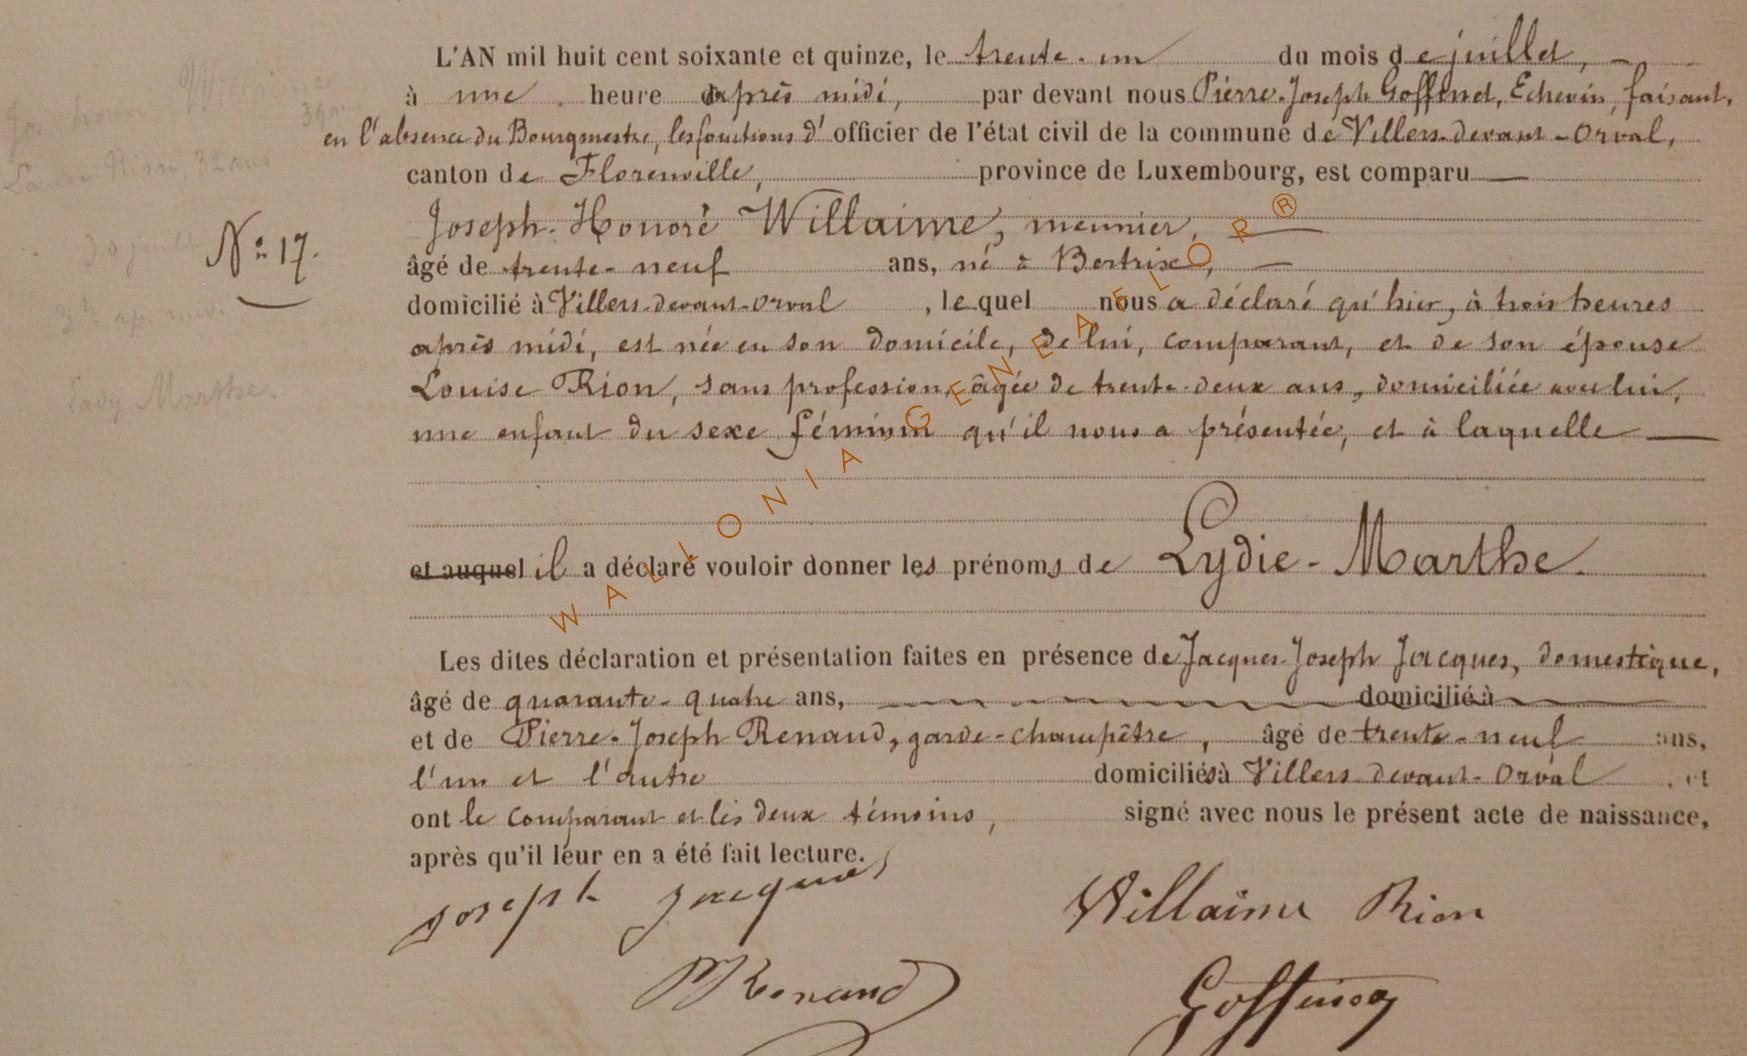 L'AN mil huit cent soixante et quinze, le trente-un du mois de juillet,
à une heure après midi, par devant nous Pierre-Joseph Goffinet, Echevin, faisant,
en l'absence du Bourgmestre, les fonctions d' officier de l'état civil de la commune de Villers-devant-Orval,
canton de Florenville, province de Luxembourg, est comparu
Joseph-Honoré Willaime, meunier,
Nº 17.
âgé de trente-neuf ans, né à Bertrix,
domicilié à Villers-devant-Orval, lequel nous a déclaré qu'hier, à trois heures
après midi, est née en son domicile, de lui, comparant, et de son épouse
Louise Rion, sans profession, âgée de trente-deux ans, domiciliée avec lui,
une enfant du sexe féminin qu'il nous a présentée, et à laquelle
et auquel il a déclaré vouloir donner les prénoms de Lydie-Marthe.
Les dites déclaration et présentation faites en présence de Jacques-Joseph Jacques, domestique,
âgé de quarante-quatre ans, domicilié à
et de Pierre-Joseph Renaud, garde-champêtre, âgé de trente-neuf ans,
l'un et l'autre domiciliés à Villers-devant-Orval, et
ont le comparant et les deux témoins, signé avec nous le présent acte de naissance,
après qu'il leur en a été fait lecture.
Joseph Jacques Willaime Rion
Renaud Goffinet
Willaime
39 ans
Rion, 32 ans
30 juillet
3 h. ap. mid.
Lady Marthe.
WALLONIA GENEAFLOR ®